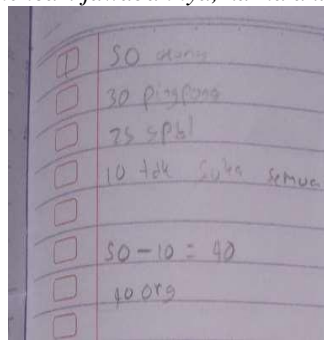 50 orang
30 pingpong
25 spbl
10 tdk suka semua
50-10 = 40
40 org